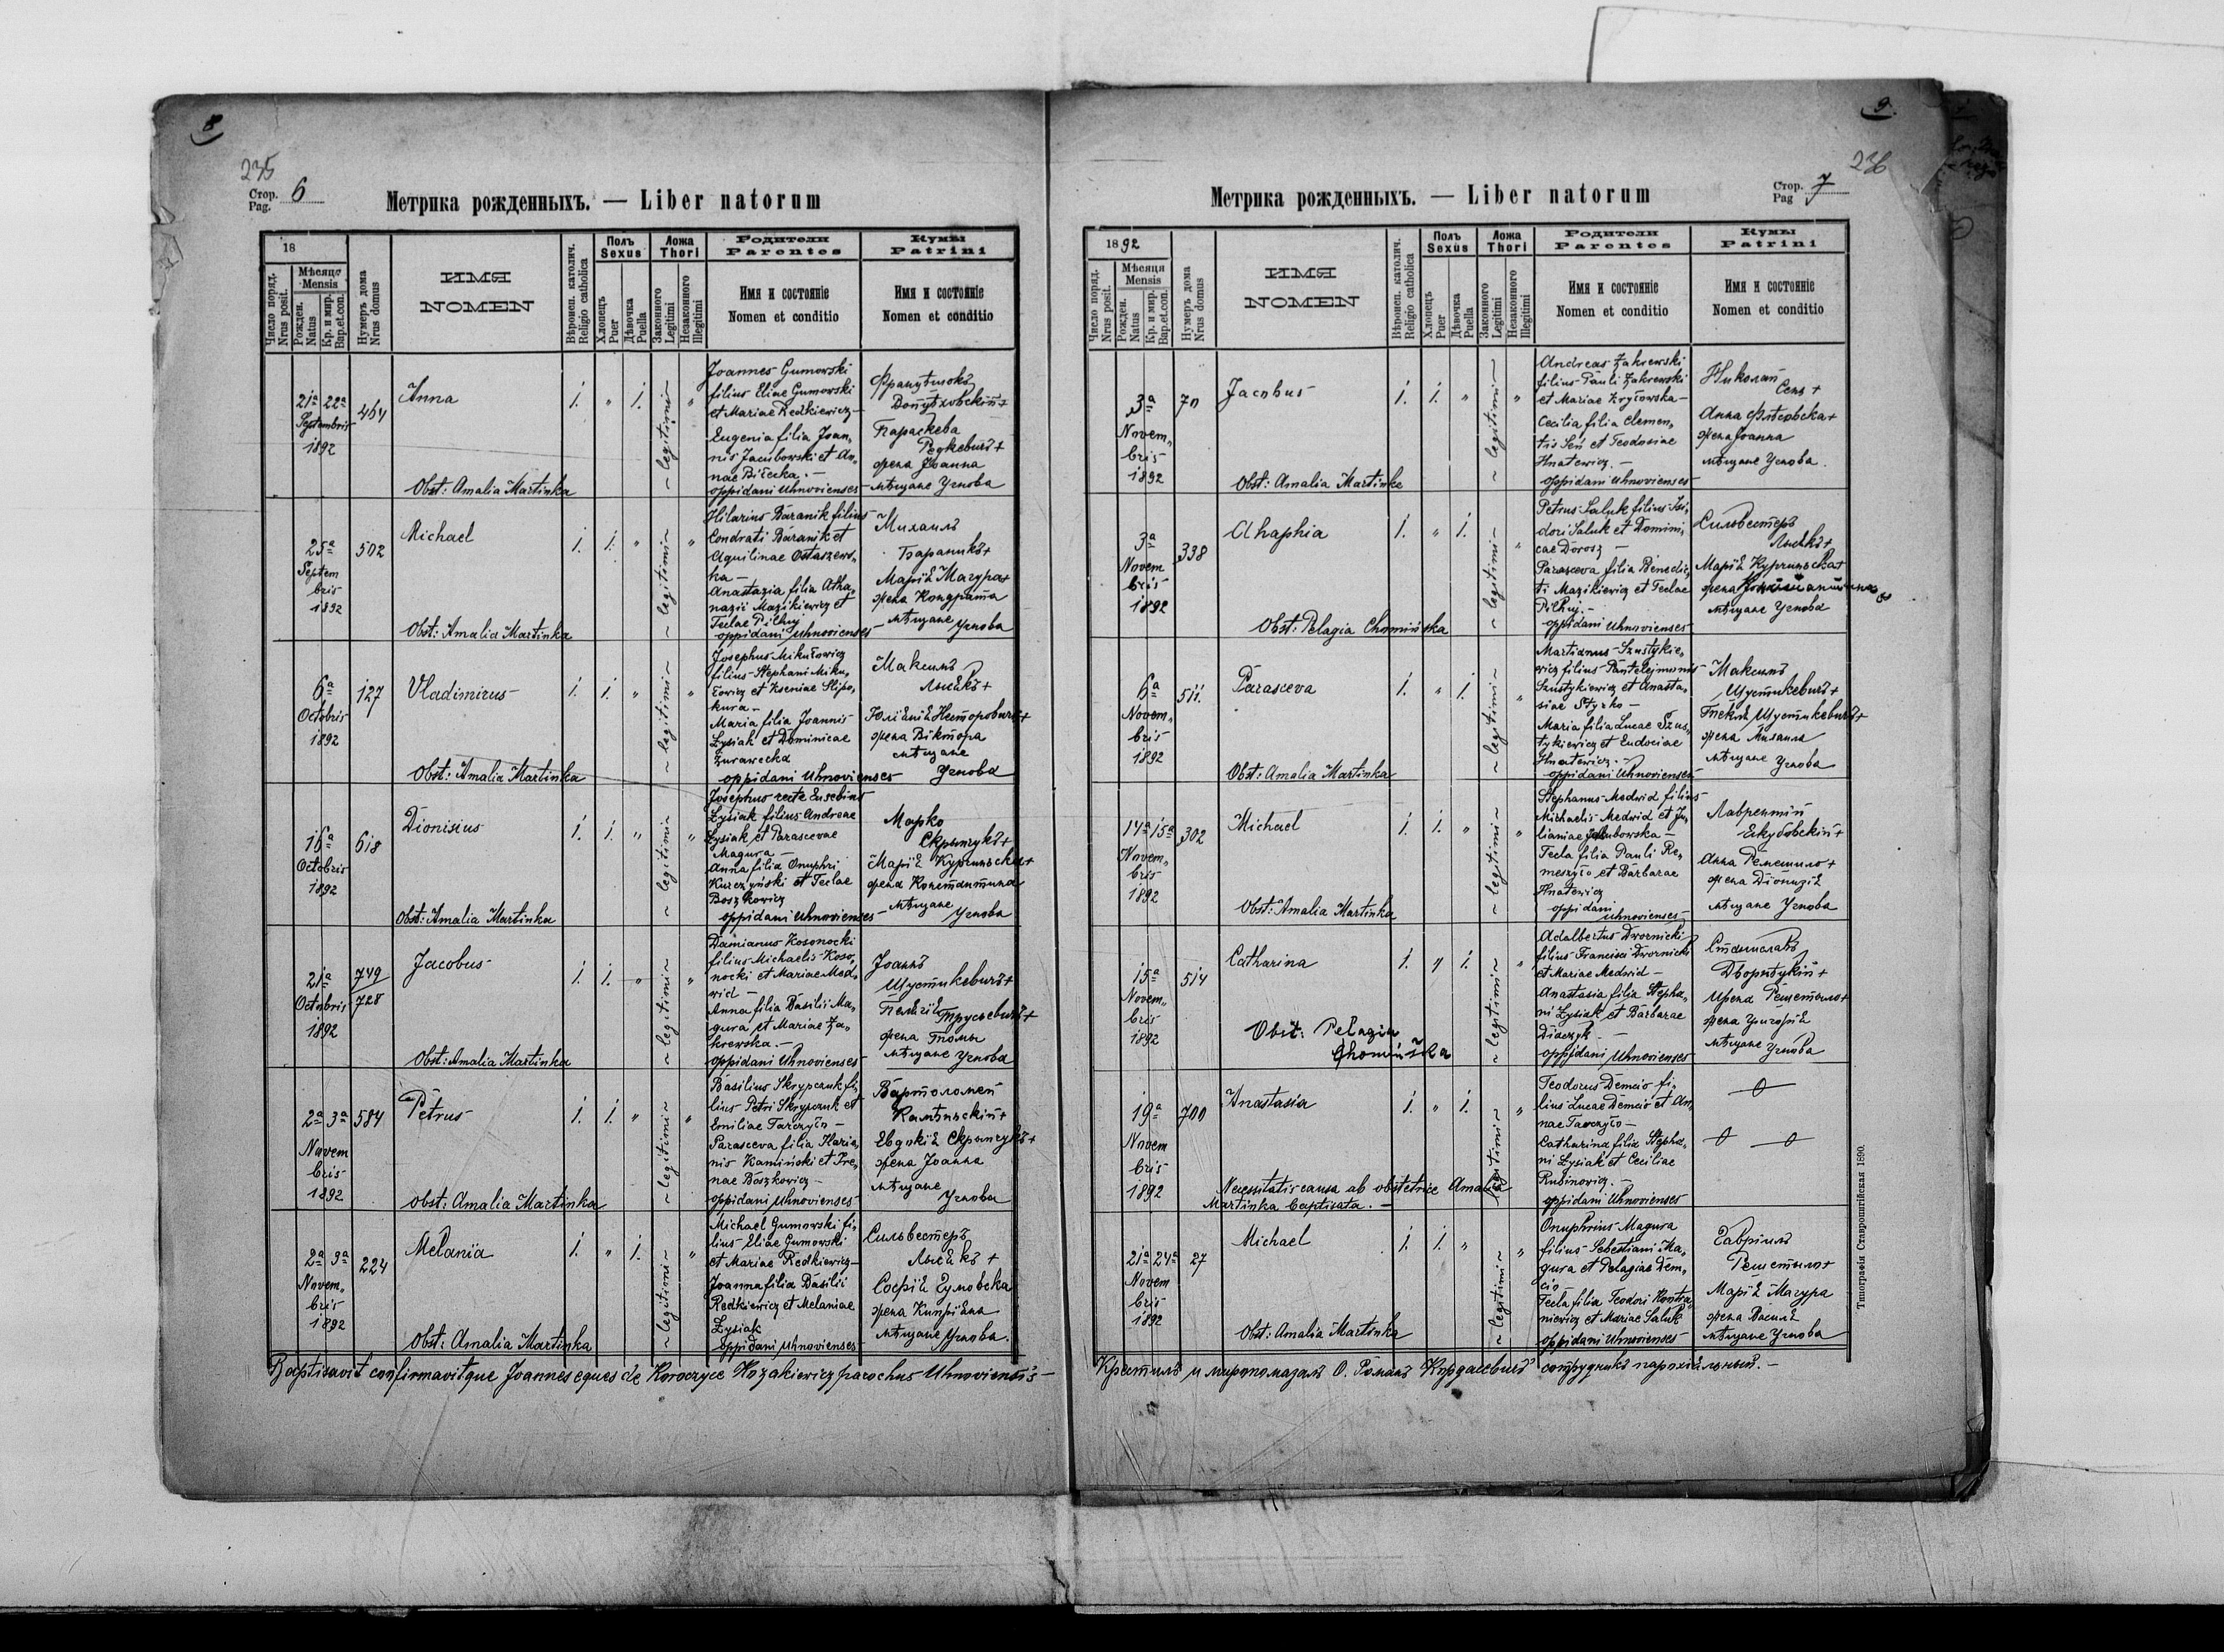 8
235
Стор. Pag. 6
Метрика рожденныхъ. — Liber natorum
18
Число поряд. Nrus posit.
Мѣсяця Mensis
Рожден. Natus
Кр. и мир. Bap.et.con.
Нумеръ дома Nrus domus
ИМЯ
NOMEN
Вѣроисп. католич. Religio catholica
Полъ Sexus
Хлопецъ Puer
Дѣвочка Puella
Ложа Thori
Законного Legitimi
Незаконного Illegitimi
Родители Parentes
Имя и состояніе
Nomen et conditio
Кумы Patrini
Имя и состояніе
Nomen et conditio
21a 22a
Septembris
1892
464
Anna
1. " 1. ~ legitimi ~ "
Obst: Amalia Martinka
Joannes Gumowski
filius Eliae Gumowski
et Mariae Redkiewicz —
Eugenia filia Joan„
nis Jacubowski et An„
nae Biłecka. —
oppidani Uhnovienses —
Параскева
Редкевичъ +
жена Іоанна
мѣщане Угнова
25a
Septem
bris
1892
502
Michael
1. 1. " ~ legitimi ~ "
Obst: Amalia Martinka
Hilarius Baranik filius
Condrati Baranik et
Aquilinae Ostaszews„
ka —
Anastazia filia Atha„
nazii Mazikiewicz et
Teclae Pilhuj
oppidani Uhnovienses —
Михаилъ
Бараникъ +
Марія Магура +
жена Кондрата
мѣщане Угнова
6a
Octobris
1892
127
Vladimirus
1. 1. " ~ legitimi ~ "
Obst: Amalia Martinka
Josephus Mikułowicz
filius Stephani Miku„
łowicz et Xseniae Slipo„
kura —
Maria filia Joannis
Łysiak et Dominicae
Żurawecka
oppidani Uhnovienses
Максимъ
Лысякъ +
Юліянія Несторовичъ +
жена Віктора
мѣщане
Угнова
16a
Octobris
1892
618
Dionisius
1. 1. " ~ legitimi ~ "
Obst: Amalia Martinka
Josephus recte Eusebius
Łysiak filius Andreae
Łysiak et Parascevae
Magura —
Anna filia Onuphri
Kurczyński et Teclae
Boszkowicz
oppidani Uhnovienses —
Марко
Скрыпчукъ +
Марія Курчиньска +
жена Константина
мѣщане
Угнова
21a
Octobris
1892
749
728
Jacobus
1. 1. " ~ legitimi ~ "
Obst: Amalia Martinka
Damianus Kosonocki
filius Michaelis Koso„
nocki et Mariae Med„
wid —
Anna filia Basilii Ma„
gura et Mariae Za„
krewska. —
oppidani Uhnovienses —
Іоаннъ
Шустикевичъ +
жена Томы
мѣщане Угнова
2a 3a
Novem
bris
1892
584
Petrus
1. 1. " ~ legitimi ~ "
obst: Amalia Martinka
Basilius Skrypczuk fi„
lius Petri Skrypczuk et
Emiliae Tarczyło —
Parasceva filia Hario„
nis Kamiński et Ire„
nae Boszkowicz —
oppidani Uhnovienses —
Вартоломей
Камѣньскій +
Евдокія Скрыпчукъ +
жена Іоанна
мѣщане
Угнова
2a 9a
Novem„
bris
1892
224
Melania
1. " 1. ~ legitimi ~ "
Obst: Amalia Martinka
Michael Gumowski fi„
lius Eliae Gumowski
et Mariae Redkiewicz —
Joanna filia Basilii
Redkiewicz et Melaniae
Łysiak
oppidani Uhnovienses
Сильвестеръ
Лысякъ +
Софія Гумовска
жена Кипріяна
мѣщане Угнова.
Baptisavit confirmavitque Joannes eques de Koroczyce Kozakiewicz parochus Uhnoviensis —
9.
236
Стор. Pag 7
Метрика рожденныхъ. — Liber natorum
1892
Число поряд. Nrus posit.
Мѣсяця Mensis
Рожден. Natus
Кр. и мир. Bap.et.con.
Нумеръ дома Nrus domus
ИМЯ
NOMEN
Вѣроисп. католич. Religio catholica
Полъ Sexus
Хлопецъ Puer
Дѣвочка Puella
Ложа Thori
Законного Legitimi
Незаконного Illegitimi
Родители Parentes
Имя и состояніе
Nomen et conditio
Кумы Patrini
Имя и состояніе
Nomen et conditio
3a
Novem„
bris
1892
70
Jacobus
1. 1. " ~ legitimi ~ "
Obst: Amalia Martinka
Andreas Zakrewski
filius Pauli Zakrewski
et Mariae Kryłowska —
Cecilia filia Clemen„
tis Seń et Teodosiae
Hnatewicz. —
oppidani Uhnovienses
Николай
Сень +
жена Іоанна
мѣщане Угнова.
3a
Novem
bris
1892
338
Ahaphia
1. " 1. ~ legitimi ~ "
Obst: Pelagia Chomińska
Petrus Saluk filius Isi„
dori Saluk et Domini„
cae Dorosz —
Parasceva filia Benedic„
ti Mazikiewicz et Teclae
Pilhuj. —
oppidani Uhnovienses
Сильвестеръ
Лысякъ +
Марія Курчиньска +
жена Константина
мѣщане Угнова
6a
Novem„
bris
1892
511.
Parasceva
1. " 1. ~ legitimi ~ "
Obst: Amalia Martinka
Martianus Szustykie„
wicz filius Pantelejmonis
Szustykiewicz et Anasta„
siae Styrko —
Maria filia Lucae Szus„
tykiewicz et Eudociae
Hnatewicz. —
oppidani Uhnovienses
Максимъ
Шустикевичъ +
Текля Шустикевичъ +
жена Михаила
мѣщане Угнова
14a 15a
Novem„
bris
1892
302
Michael
1. 1. " ~ legitimi ~ "
Obst: Amalia Martinka
Stephanus Medwid filius
Michaelis Medwid et Ju„
lianiae Jakubowska —
Tecla filia Pauli Re„
meszyło et Barbarae
Hnatewicz
oppidani
Uhnovienses —
Лаврентій
Якубовскій +
Анна Ремешило +
жена Діонизія
мѣщане Угнова
15a
Novem„
bris
1892
514
Catharina
1. " 1. ~ legitimi ~ "
Obst: Pelagia
Chomińska
Adalbertus Dwornicki
filius Francisci Dwornicki
et Mariae Medwid —
Anastasia filia Stepha„
ni Łysiak et Barbarae
Diaczyk —
oppidani Uhnovienses
Станиславъ
Дворніцкій +
жена Григорія
мѣщане Угнова
19a
Novem
bris
1892
700
Anastasia
1. " 1. ~ legitimi ~ "
Necessitatis causa ab obstetrice Amalia
Martinka baptisata. —
Teodorus Demcio fi„
lius Lucae Demcio et An„
nae Tarczyło —
Catharina filia Stepha„
ni Łysiak et Ceciliae
Rubinowicz. —
oppidani Uhnovienses
21a 24a
Novem
bris
1892
27
Michael
1. 1. " ~ legitimi ~ "
Obst: Amalia Martinka
Onuphrius Magura
filius Sebestiani Ma„
gura et Pelagiae Dem„
cio
Tecla filia Teodori Kontra„
niewicz et Mariae Saluk
oppidani Uhnovienses
Гавріилъ
Решетыло +
Марія Магура
жена Василя
мѣщане Угнова
Крестилъ и миропомазалъ О. Романъ Кордасевичъ сотрудникъ парохіяльный. —
Типографія Ставропигійская 1890.